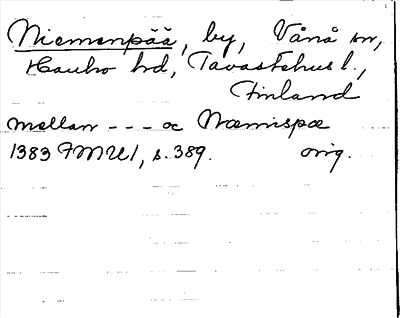 Niemenpää, by, Vånå sn,
Hauho hd, Tavastehus l.,
Finland
mellan --- oc Næmispæ
1383 FMU1, s. 389. orig.